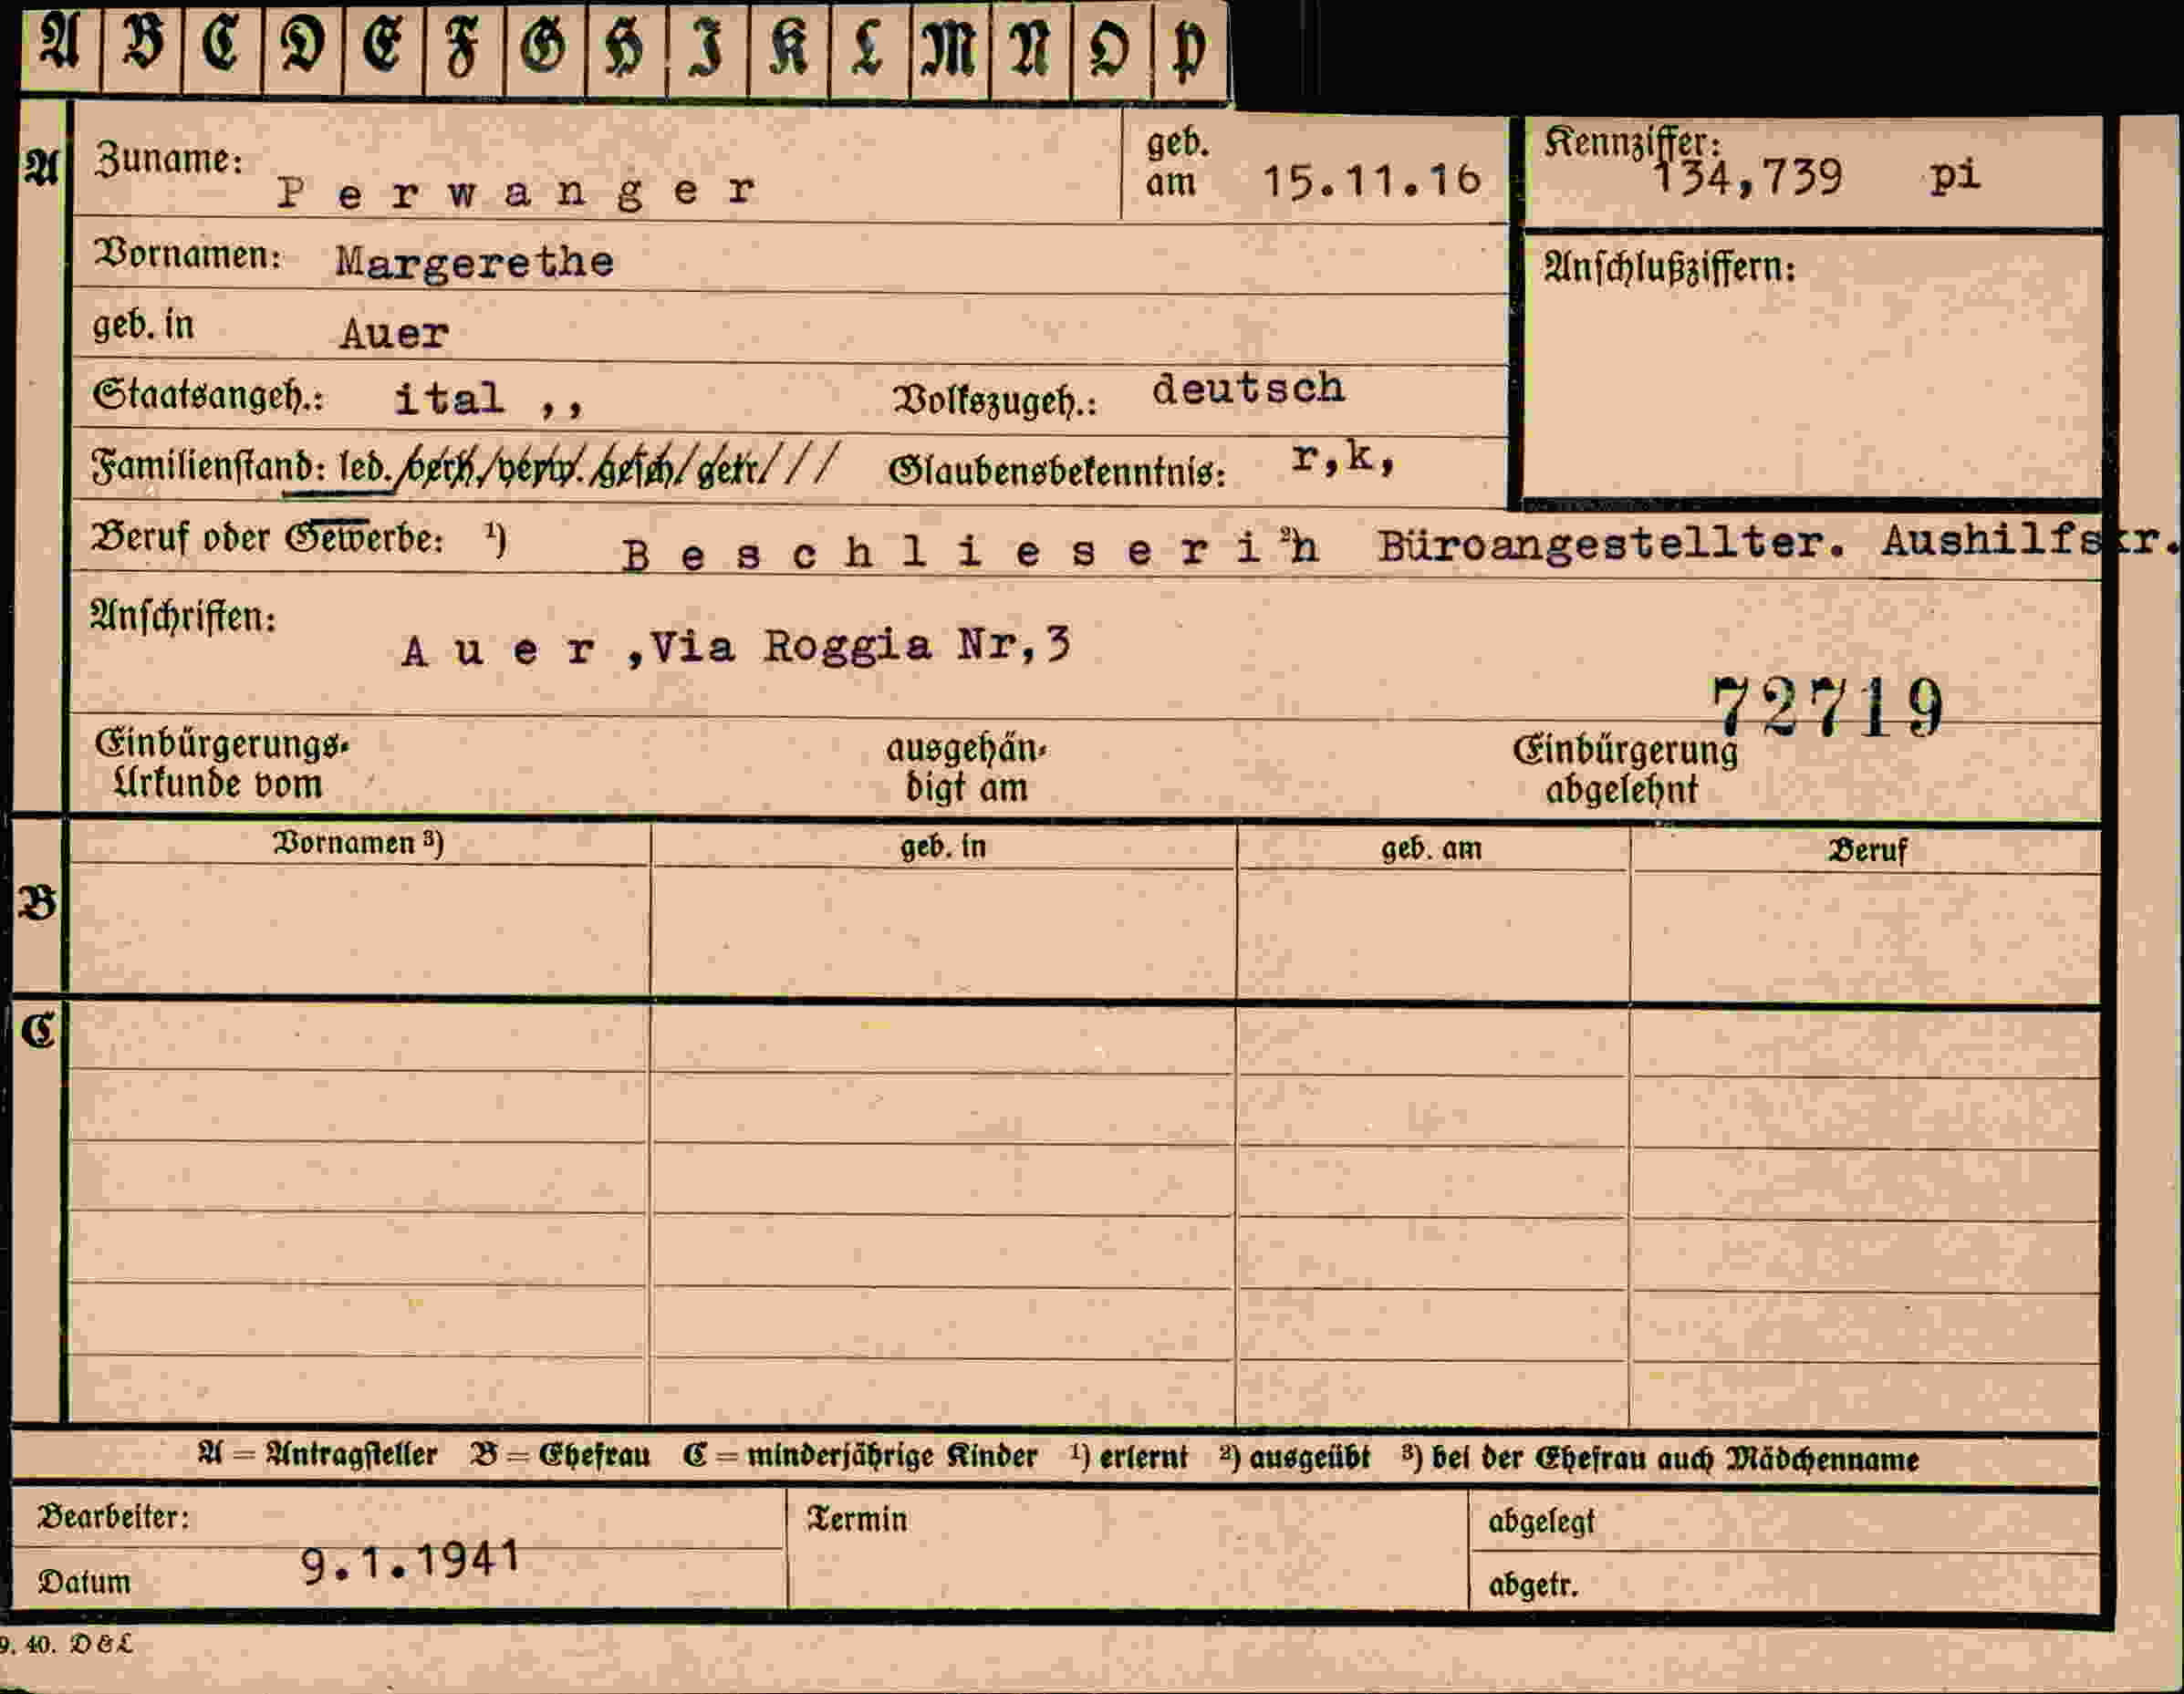 A B C D E F G H I K L M N O P
A Zuname: Perwanger geb. am 15.11.16 Kennziffer: 134,739 pi
Vornamen: Margerethe Anschlußziffern:
geb. in Auer
Staatsangeh.: ital ,, Volkszugeh.: deutsch
Familienstand: led./verh./verw./gesch/getr/// Glaubensbekenntnis: r,k,
Beruf oder Gewerbe: ¹) Beschlieserin ²) Büroangestellter. Aushilfskr.
Anschriften:
Auer ,Via Roggia Nr,3
72719
Einbürgerungs- Urkunde vom ausgehän- digt am Einbürgerung abgelehnt
Vornamen ³) geb. in geb. am Beruf
B
C
A = Antragsteller B = Ehefrau C = minderjährige Kinder ¹) erlernt ²) ausgeübt ³) bei der Ehefrau auch Mädchenname
Bearbeiter: Termin abgelegt
Datum 9.1.1941 abgetr.
9. 40. D & L